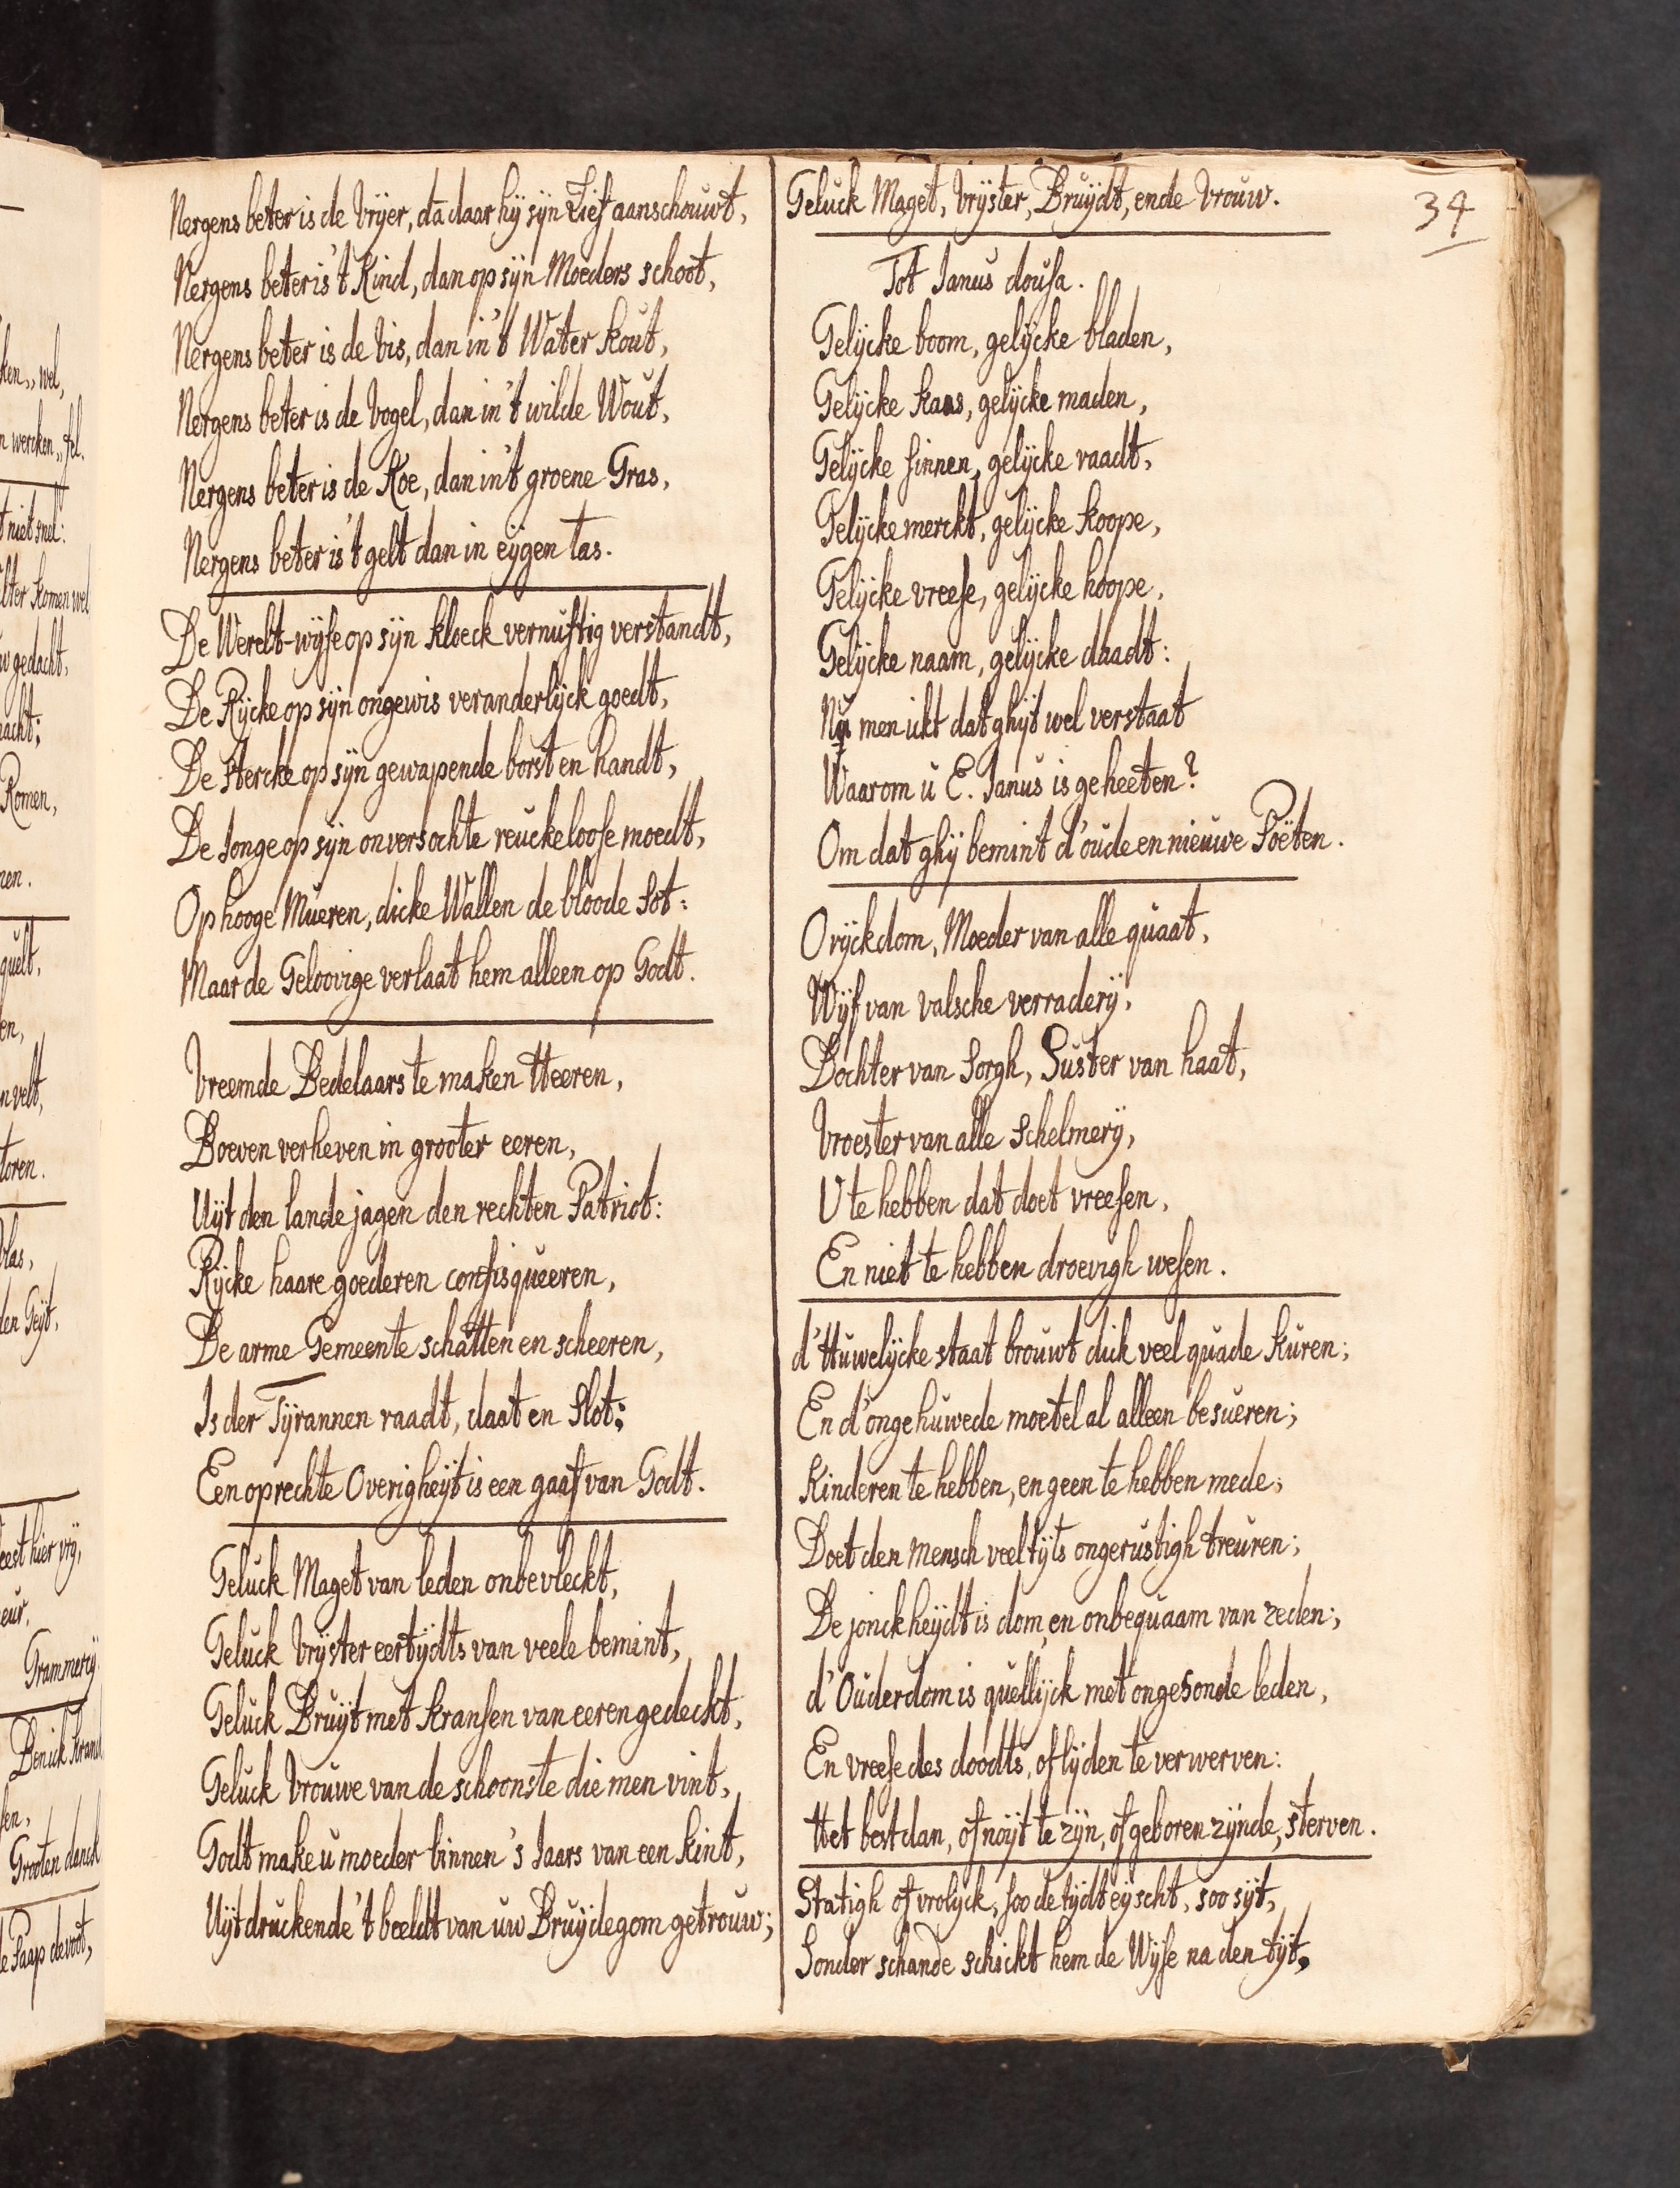 Nergens beter is de Vrijer, da daar hij sijn Lief aanschouwt,
Nergens beter is 't Kind, dan op sijn Moeders schoot,
Nergens beter is de Vis, dan in 't Water kout,
Nergens beter is de Vogel, dan in 't wilde Wout,
Nergens beter is de Koe, dan in 't groene Gras,
Nergens beter is 't gelt dan in eijgen tas.
De Werelt-wijse op sijn kloeck vernuftig verstandt,
De Rijcke op sijn ongewis veranderlijck goedt,
De Stercke op sijn gewapende borst en handt,
De Jonge op sijn onversochte reuckeloose moedt,
Op hooge Mueren, dicke Wallen de bloode Sot:
Maar de Geloovige verlaat hem alleen op Godt.
Vreemde Bedelaars te maken Heeren,
Boeven verheven in grooter eeren,
Uijt den lande jagen den rechten Patriot:
Rijcke haare goederen confisqueeren,
De arme Gemeente schatten en scheeren,
Is der Tijrannen raadt, daat en Slot;
Een oprechte Overigheijt is een gaaf van Godt.
Geluck Maget van leden onbevleckt,
Geluck Vrijster eertijdts van veele bemint,
Geluck Bruijt met kransen van eeren gedeckt,
Geluck Vrouwe van de schoonste die men vint,
Godt make u moeder binnen 's Jaars van een kint,
Uijtdruckende 't beeldt van uw Bruijdegom getrouw;
Geluck Maget, Vrijster, Bruijdt, ende Vrouw.
34
Tot Janus dousa.
Gelijcke boom, gelijcke bladen,
Gelijcke kaas, gelijcke maden,
Gelijcke sinnen, gelijcke raadt,
Gelijcke merckt, gelijcke koope,
Gelijcke vreese, gelijcke hoope,
Gelijcke naam, gelijcke daadt:
Nu men ickt dat ghijt wel verstaat
Waarom u E. Janus is geheeten?
Om dat ghij bemint d'oude en nieuwe Poëten.
O rijckdom, Moeder van alle quaat,
Wijf van valsche verraderij,
Dochter van Sorgh, Suster van haat,
Vroester van alle Schelmerij,
U te hebben dat doet vreesen,
En niet te hebben droevigh wesen.
d'Huwelijcke staat brouwt dick veel quade kuren;
En d'ongehuwede moetel al alleen besueren;
Kinderen te hebben, en geen te hebben mede;
Doet den mensch veeltijts ongerustigh treuren;
De jonckheijdt is dom, en onbequaam van zeden;
d'Ouderdom is quellijck met ongesonde leden,
En vreese des doodts, of lijden te verwerven:
Het best dan, of noijt te zijn, of geboren zijnde, sterven.
Statigh of vrolijck, soo de tijdt eijscht, soo sijt,
Sonder schande schickt hem de Wijse na den tijt,